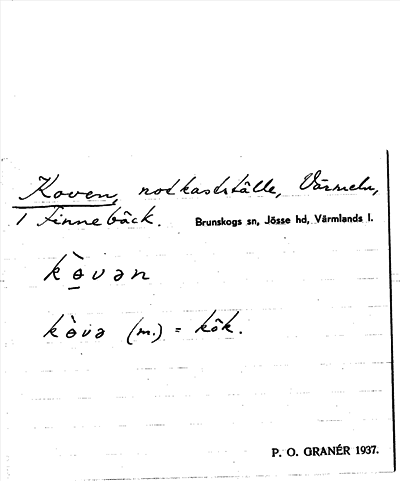 Koven, notkastställe, Värmeln,
1 Finnebäck. Brunskogs sn, Jösse hd, Värmlands l.
kɵ̀vən
kɵ̀və (m.) = kök.
P. O. GRANÉR 1937.